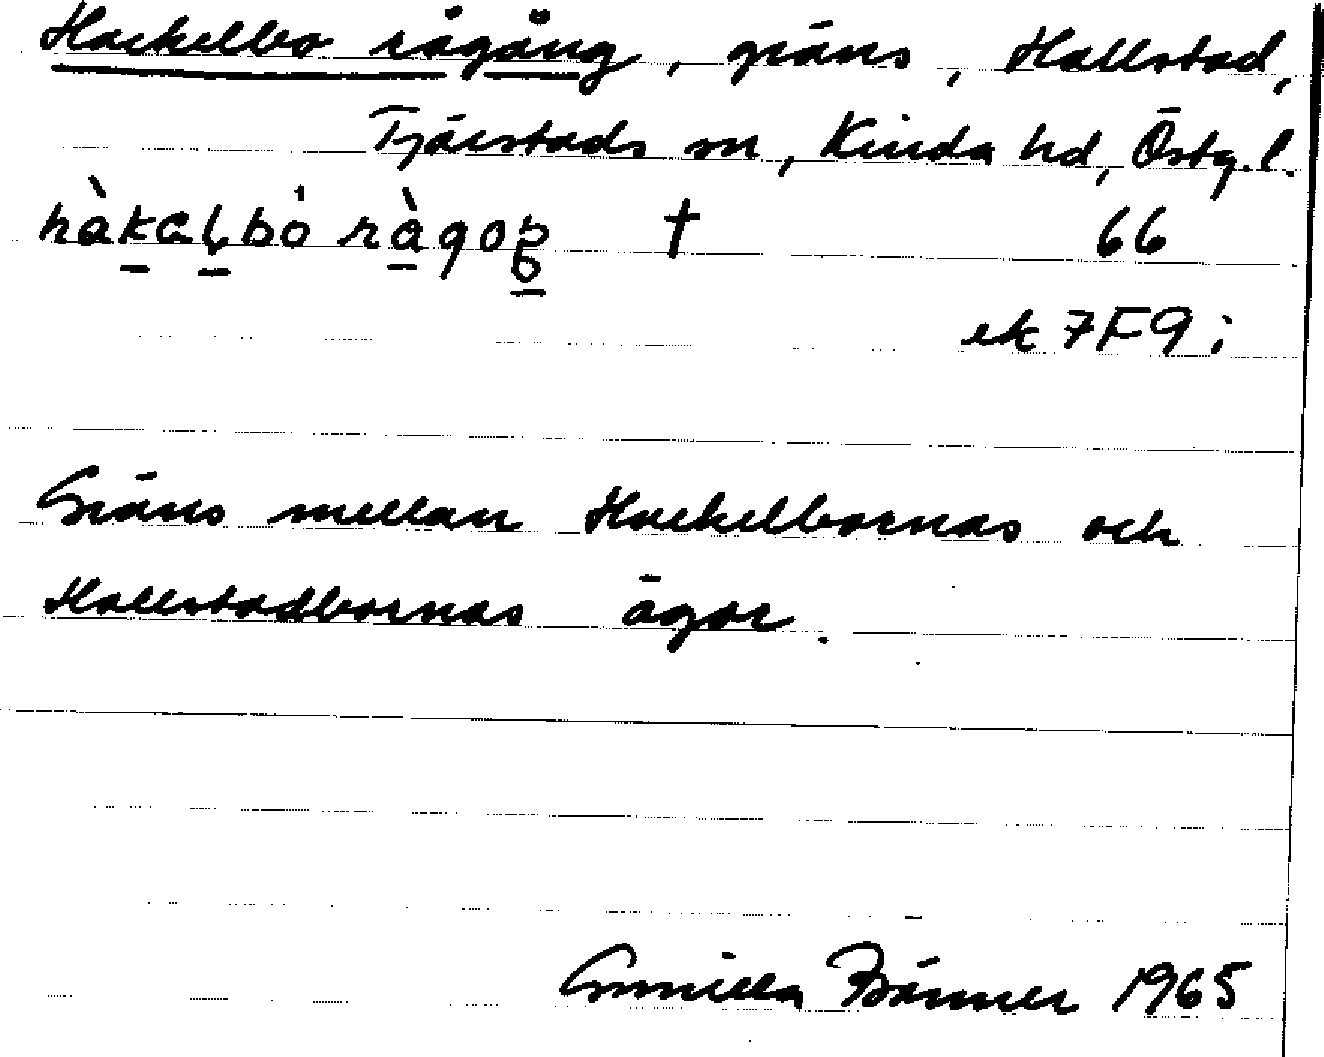 Hackelbo rågång, gräns, Hallstad,
Tjärstads sn, Kinda hd, Östg.l.
hàkalbò ràgoŋ † 66
ek 7F9i
Gräns mellan Hackelbornas och
Hallstadbornas ägor.
Gunilla 1965